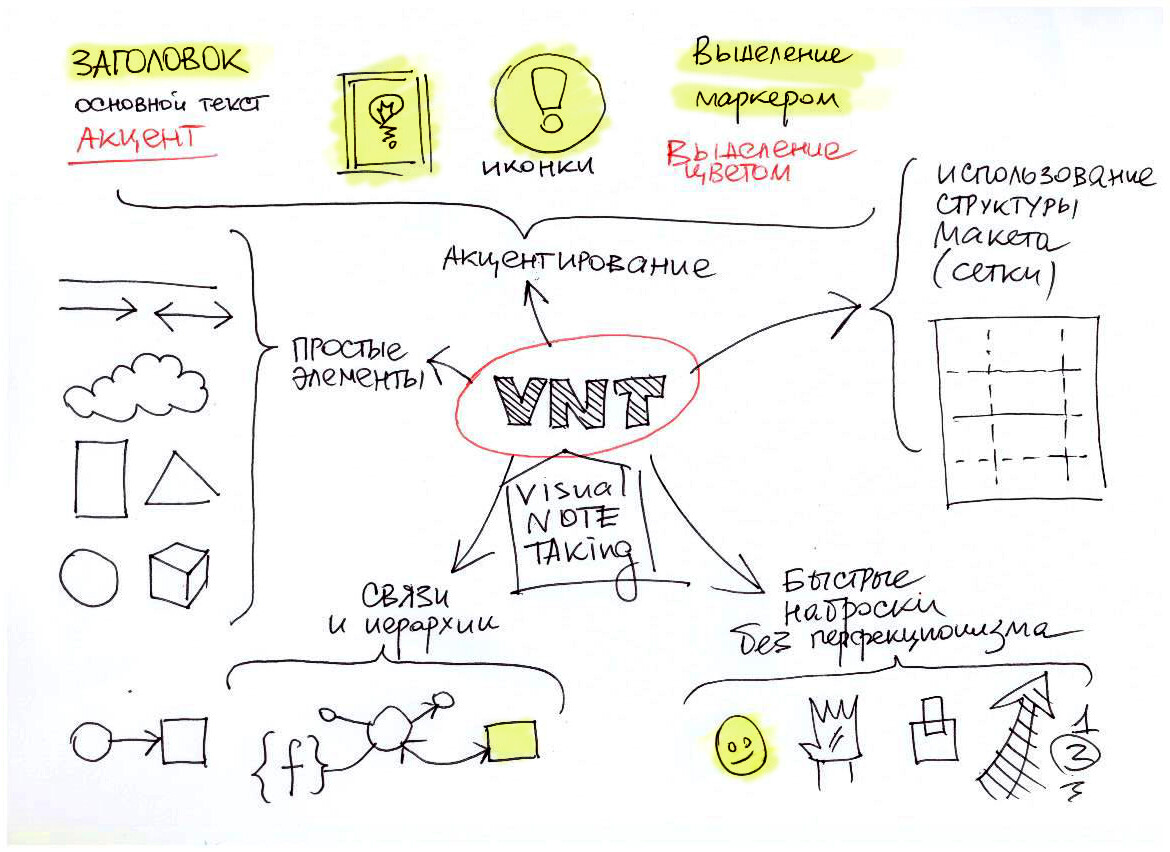 ЗАГОЛОВОК
основной текст
АКЦЕНТ
иконки
Выделение
маркером
Выделение
цветом
использование
структуры
макета
(сетки)
Акцентирование
простые
элементы
VNT
Visual
NOTE
TAKing
связи
и иерархии
Быстрые
наброски
без перфекционизма
{f}
1
2
3